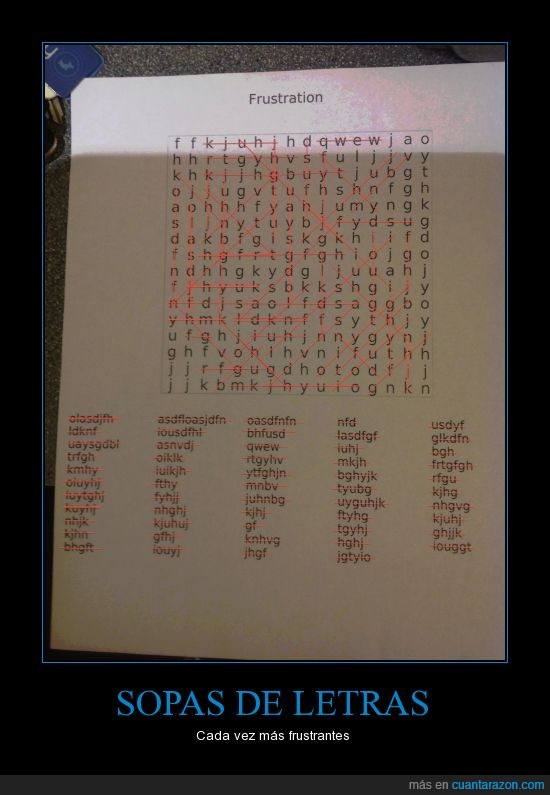 Frustration
f f k j u h j h d q w e w j a o
h h r t g y h v s f u l j j v y
k h k j j h g b u y t j u b g t
o j j u g v t u f h s h n f g h
a o h h h f y a h j u m y n g k
s l j n y t u y b j f y d s u g
d a k b f g i s k g k h i i f d
f s h g f r t g f g h i o j g o
n d h h g k y d g l j u u a h j
f j h y u k s b k k s h g i j y
n f d j s a o l f d s a g g b o
y h m k l d k n f f s y t h j y
u f g h j i u h j n n y g y n j
g h f v o h i h v n i f u t h h
j j r f g u g d h o t o d f j j
j j k b m k j h y u i o g n k n
olasdjfh asdfloasjdfn oasdfnfn nfd usdyf
ldknf iousdfhl bhfusd lasdfgf glkdfn
uaysgdbl asnvdj qwew iuhj bgh
trfgh oiklk rtgyhv mkjh frtgfgh
kmhy iuikjh ytfghjn bghyjk rfgu
oiuyhj fthy mnbv tyubg kjhg
iuytghj fyhjj juhnbg uyguhjk nhgvg
kuyhj nhghj kjhj ftyhg kjuhj
nhjk kjuhuj gf tgyhj ghjjk
kjhn gfhj knhvg hghj iouggt
bhgft iouyj jhgf jgtyio
SOPAS DE LETRAS
Cada vez más frustrantes
más en cuantarazon.com